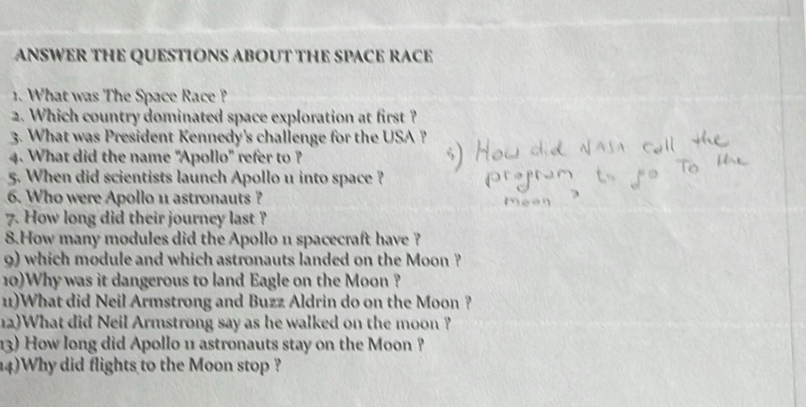 ANSWER THE QUESTIONS ABOUT THE SPACE RACE
1. What was The Space Race ?
2. Which country dominated space exploration at first ?
3. What was President Kennedy's challenge for the USA ?
4. What did the name "Apollo" refer to ?
5. When did scientists launch Apollo 11 into space ?
6. Who were Apollo 11 astronauts ?
7. How long did their journey last ?
8.How many modules did the Apollo 11 spacecraft have ?
9) which module and which astronauts landed on the Moon ?
10)Why was it dangerous to land Eagle on the Moon ?
11)What did Neil Armstrong and Buzz Aldrin do on the Moon ?
12)What did Neil Armstrong say as he walked on the moon ?
13) How long did Apollo 11 astronauts stay on the Moon ?
14)Why did flights to the Moon stop ?
How did NASA call the
program to go To the
moon ?